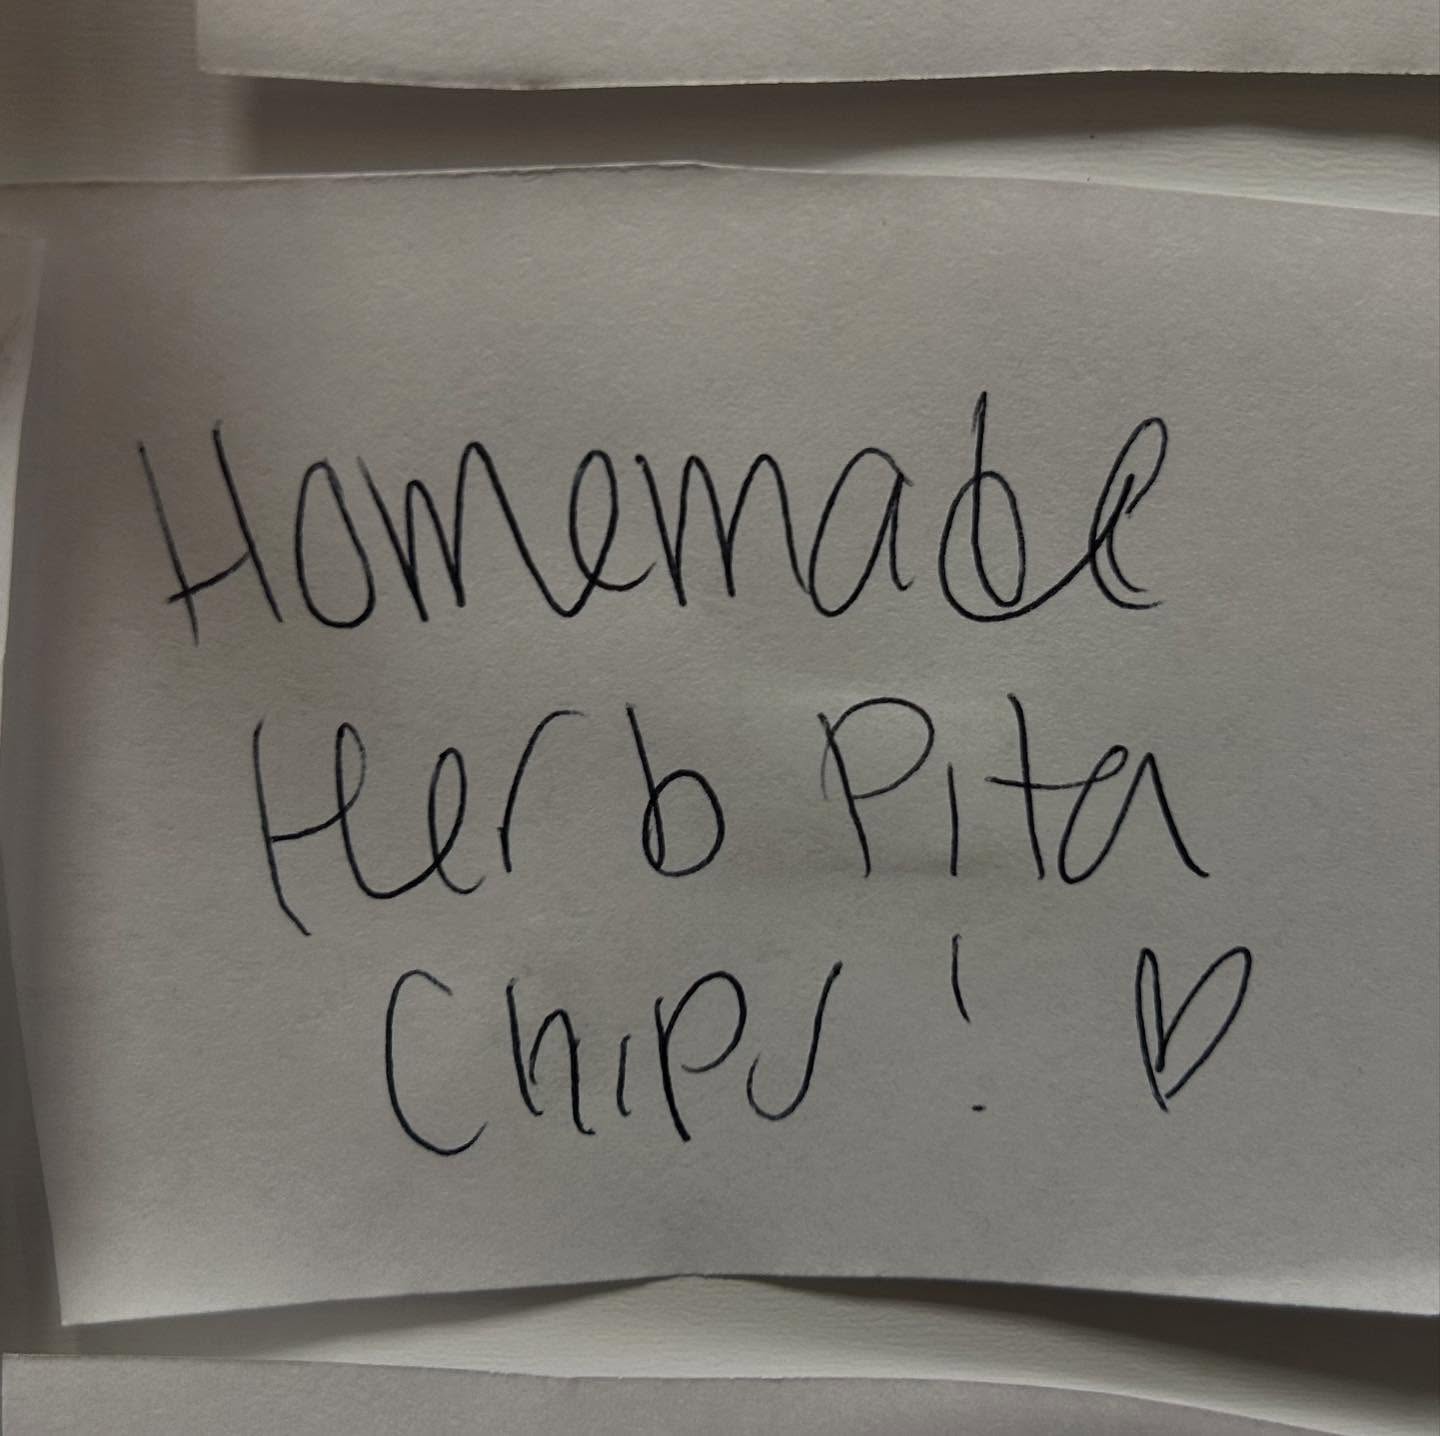 Homemade
Herb Pita
Chips! ♡